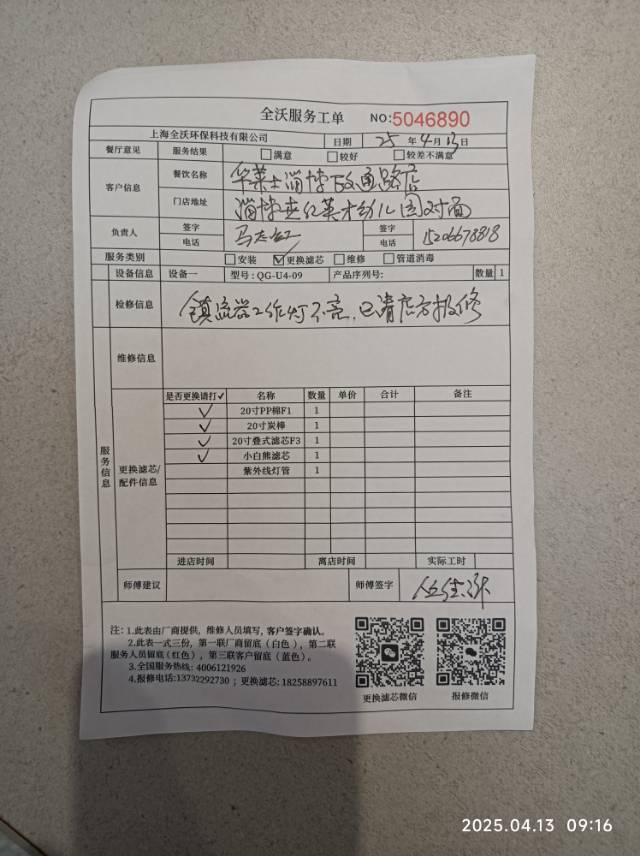 全沃服务工单 NO:5046890
上海全沃环保科技有限公司 日期 25 年 4 月 13 日
餐厅意见 服务结果 □满意 □较好 □较差不满意
客户信息 餐饮名称 华莱士淄博 通路店
门店地址 淄博 英才幼儿园对面
负责人 签字 马志红 签字
电话 电话 15206678818
服务类别 □安装 ☑更换滤芯 □维修 □管道消毒
设备信息 设备一 型号: QG-U4-09 产品序列号: 数量 1
检修信息 镇流器工作灯不亮,已请店方报修
维修信息
服务信息
更换滤芯/配件信息
是否更换请打✓ 名称 数量 单价 合计 备注
✓ 20寸PP棉F1 1
✓ 20寸炭棒 1
✓ 20寸叠式滤芯F3 1
✓ 小白熊滤芯 1
紫外线灯管 1
进店时间 离店时间 实际工时
师傅建议 师傅签字
注: 1.此表由厂商提供, 维修人员填写, 客户签字确认。
2.此表一式三份, 第一联厂商留底 (白色), 第二联
服务人员留底(红色), 第三联客户留底 (蓝色)。
3.全国服务热线: 4006121926
4.报修电话:13732292730 ; 更换滤芯: 18258897611
更换滤芯微信 报修微信
2025.04.13 09:16